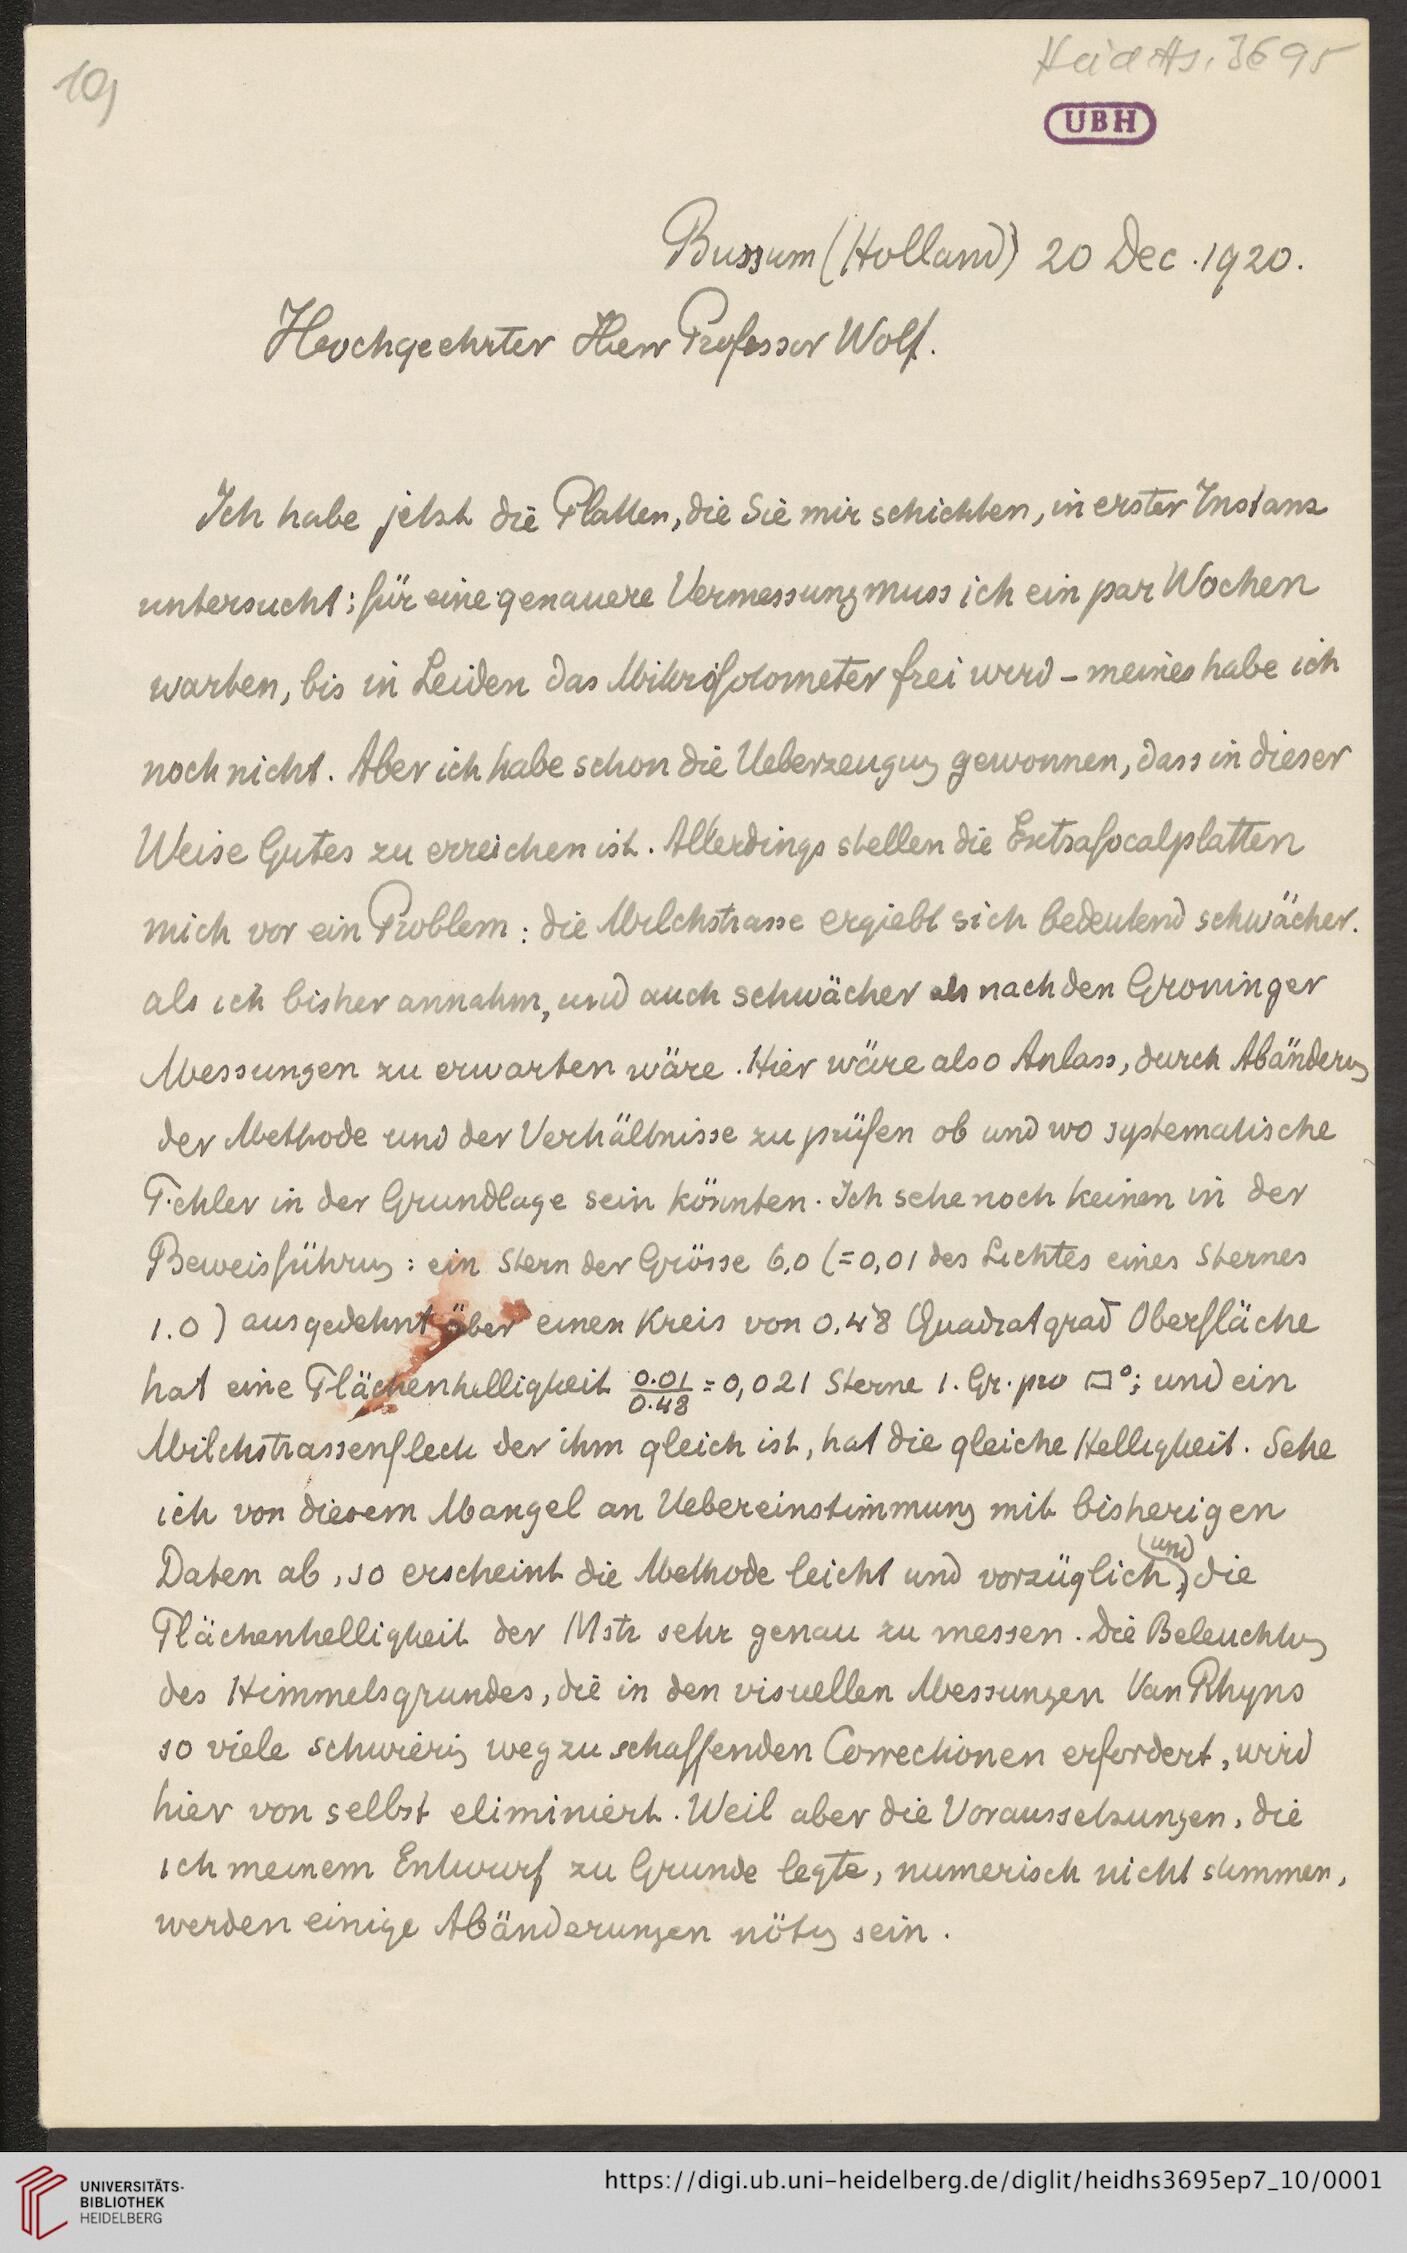 10,
Heid Hs. 3695
UBH
Bussum (Holland) 20 Dec. 1920.
Hochgeehrter Herr Professor Wolf.
Ich habe jetzt die Platten, die Sie mir schickten, in erster Instanz
untersucht; für eine genauere Vermessung muss ich ein par Wochen
warten, bis in Leiden das Mikrofotometer frei wird – meines habe ich
noch nicht. Aber ich habe schon die Ueberzeugung gewonnen, dass in dieser
Weise Gutes zu erreichen ist. Allerdings stellen die Extrafocalplatten
mich vor ein Problem: die Milchstrasse ergiebt sich bedeutend schwächer.
als ich bisher annahm, und auch schwächer als nach den Groninger
Messungen zu erwarten wäre. Hier wäre also Anlass, durch Abänderung
der Methode und der Verhältnisse zu prüfen ob und wo systematische
Fehler in der Grundlage sein könnten. Ich sehe noch keinen in der
Beweisführung: ein Stern der Grösse 6,0 (=0,01 des Lichtes eines Sternes
1.0) ausgedehnt über einen Kreis von 0.48 Quadratgrad Oberfläche
hat eine Flächenhelligkeit 0.01/0.48 = 0,021 Sterne 1. Gr. pro □°; und ein
Milchstrassenfleck der ihm gleich ist, hat die gleiche Helligkeit. Sehe
ich von diesem Mangel an Uebereinstimmung mit bisherigen
Daten ab, so erscheint die Methode leicht und vorzüglich, (und) die
Flächenhelligkeit der Mstr sehr genau zu messen. Die Beleuchtung
des Himmelsgrundes, die in den visuellen Messungen Van Rhyns
so viele schwierig wegzuschaffenden Correctionen erfordert, wird
hier von selbst eliminiert. Weil aber die Voraussetzungen, die
ich meinem Entwurf zu Grunde legte, numerisch nicht stimmen,
werden einige Abänderungen nötig sein.
UNIVERSITÄTS-
BIBLIOTHEK
HEIDELBERG
https://digi.ub.uni-heidelberg.de/diglit/heidhs3695ep7_10/0001